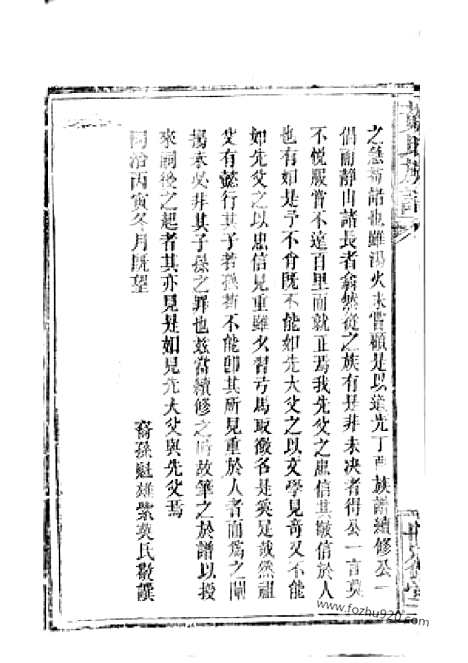 之急苟諾也雖湯火未嘗顧是以道光丁酉族譜續修公一
倡而靜山諸長者翕然從之族有是非未决者得公一言莫
不悅服嘗不遠百里而就正焉我先父之忠信其敬信於人
也有如是予不肖既不能如先大父之以文學見奇又不能
如先父之以忠信見重雖少習弓馬取徵名是奚足哉然祖
父有懿行其子若孫苟不能即其所見重於人者而爲之闡
揚表央非其子孫之罪也茲當續修之時故筆之於譜以授
來嗣後之起者其亦見是如見先大父與先父焉
同治丙寅冬月既望
裔孫魁雄紫英氏敬譔
氏族譜
堂
www.fozhu920.com